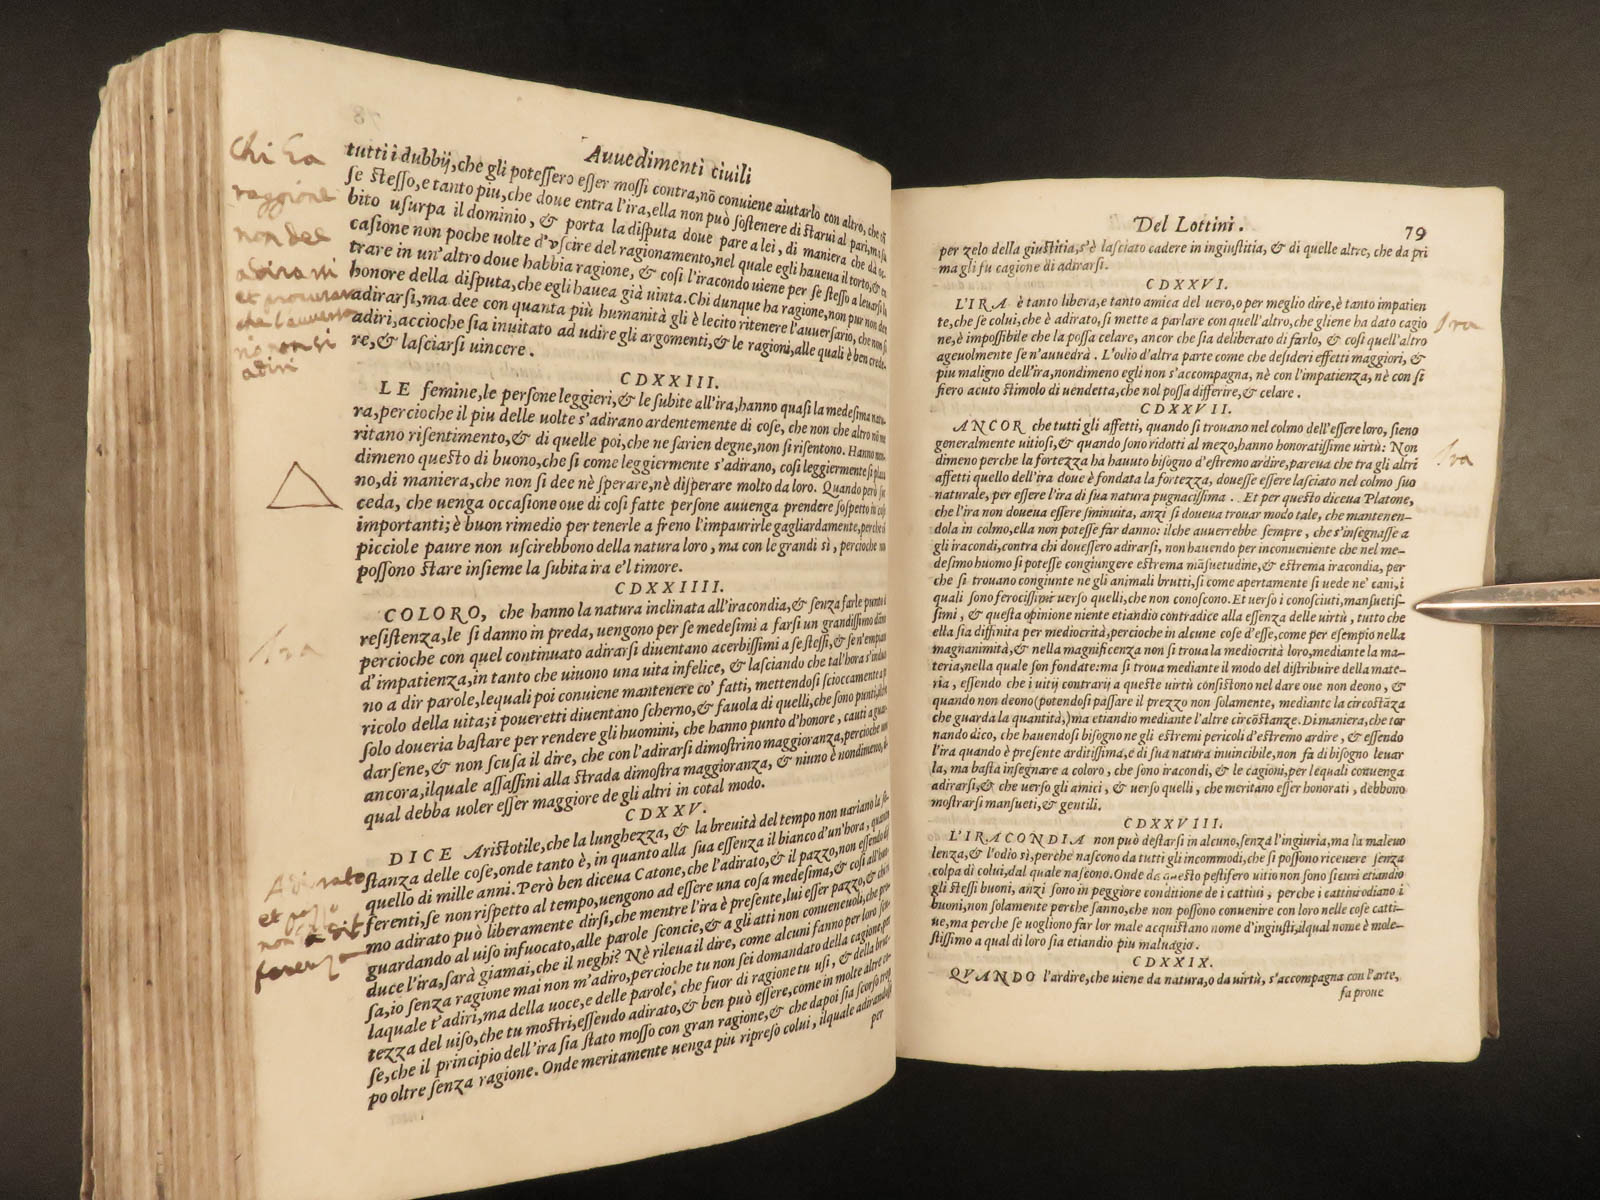 Auuedimenti ciuili
tutti i dubbij, che gli poteſſero eſſer moſſi contra, nō conuiene aiutarlo con altro, che
ſe ſteſſo, e tanto piu, che doue entra l'ira, ella non può ſoſtenere di ſtarui al pari, ma
bito uſurpa il dominio, & porta la diſputa doue pare a lei, di maniera che dà
caſione non poche uolte d'vſcire del ragionamento, nel quale egli haueua il torto, &
trare in un'altro doue habbia ragione, & coſi l'iracondo uiene per ſe ſteſſo a leuarſi
honore della diſputa, che egli hauea già uinta. Chi dunque ha ragione, non pur non dee
adirarſi, ma dee con quanta più humanità gli è lecito ritenere l'auuerſario, che non ſi
adiri, accioche ſia inuitato ad udire gli argomenti, & le ragioni, alle quali è ben crede-
re, & laſciarſi uincere.
CDXXIII.
LE femine, le perſone leggieri, & le ſubite all'ira, hanno quaſi la medeſima natu-
ra, percioche il piu delle uolte s'adirano ardentemente di coſe, che non che altro nō me
ritano riſentimento, & di quelle poi, che ne ſarien degne, non ſi riſentono. Hanno non-
dimeno queſto di buono, che ſi come leggiermente s'adirano, coſi leggiermente ſi placa
no, di maniera, che non ſi dee nè ſperare, nè diſperare molto da loro. Quando però
ceda, che uenga occaſione oue di coſi fatte perſone auuenga prendere ſoſpetto in
importanti; è buon rimedio per tenerle a freno l'impaurirle gagliardamente, perche
picciole paure non uſcirebbono della natura loro, ma con le grandi sì, percioche
poſſono ſtare inſieme la ſubita ira e'l timore.
CDXXIIII.
COLORO, che hanno la natura inclinata all'iracondia, & ſenza farle punto
reſiſtenza, le ſi danno in preda, uengono per ſe medeſimi a farſi un grandiſſimo
percioche con quel continuato adirarſi diuentano acerbiſſimi a ſe ſteſſi, & ſe n'empiano
d'impatienza, in tanto che uiuono una uita infelice, & laſciando che tal'hora
no a dir parole, lequali poi conuiene mantenere co' fatti, mettendoſi ſcioccamente a
ricolo della uita; i poueretti diuentano ſcherno, & fauola di quelli, che ſono
ſolo doueria baſtare per rendere gli huomini, che hanno punto d'honore, cauti a guar-
darſene, & non ſcuſa il dire, che con l'adirarſi dimoſtrino maggioranza, percioche
ancora, ilquale aſſaſſini alla ſtrada dimoſtra maggioranza, & niuno è nondimeno, il-
qual debba uoler eſſer maggiore de gli altri in cotal modo.
CDXXV.
DICE Ariſtotile, che la lunghezza, & la breuità del tempo non uariano la
ſtanza delle coſe, onde tanto è, in quanto alla ſua eſſenza il bianco d'un'hora, quanto
quello di mille anni. Però ben diceua Catone, che l'adirato, & il pazzo, non eſſendo dif
ferenti, ſe non riſpetto al tempo, uengono ad eſſere una coſa medeſima, & coſi
mo adirato può liberamente dirſi, che mentre l'ira è preſente, lui eſſer pazzo, & chi
guardando al uiſo infuocato, alle parole ſconcie, & a gli atti non conueneuoli, che
duce l'ira, ſarà giamai, che il neghi? Nè rileua il dire, come alcuni fanno per loro
ſa, io ſenza ragione mai non m'adiro, percioche tu non ſei domandato della cagione, per
laquale t'adiri, ma della uoce, e delle parole, che fuor di ragione tu uſi, & della
tezza del uiſo, che tu moſtri, eſſendo adirato, & ben può eſſere, come in molte altre
ſe, che il principio dell'ira ſia ſtato moſſo con gran ragione, & che dapoi ſia ſcorſo
po oltre ſenza ragione. Onde meritamente uenga piu ripreſo colui, ilquale adirandoſi
per
Chi ha
raggione
non dee
adirarsi
et procurar
che l'auuersa
rio non si
adiri
Ira
Adirato
et pazzo
non
ferenza
Del Lottini. 79
per zelo della giuſtitia, s'è laſciato cadere in ingiuſtitia, & di quelle altre, che da pri
ma gli fu cagione di adirarſi.
CDXXVI.
L'IRA è tanto libera, e tanto amica del uero, o per meglio dire, è tanto impatien
te, che ſe colui, che è adirato, ſi mette a parlare con quell'altro, che gliene ha dato cagio
ne, è impoſſibile che la poſſa celare, ancor che ſia deliberato di farlo, & coſi quell'altro
ageuolmente ſe n'auuedrà. L'odio d'altra parte come che deſideri effetti maggiori, &
piu maligno dell'ira, nondimeno egli non s'accompagna, nè con l'impatienza, nè con ſi
fiero acuto ſtimolo di uendetta, che nol poſſa differire, & celare.
CDXXVII.
ANCOR che tutti gli affetti, quando ſi trouano nel colmo dell'eſſere loro, ſieno
generalmente uitioſi, & quando ſono ridotti al mezo, hanno honoratiſſime uirtù: Non
dimeno perche la fortezza ha hauuto biſogno d'eſtremo ardire, pareua che tra gli altri
affetti quello dell'ira doue è fondata la fortezza, doueſſe eſſere laſciato nel colmo ſuo
naturale, per eſſere l'ira di ſua natura pugnaciſſima. Et per queſto diceua Platone,
che l'ira non doueua eſſere ſminuita, anzi ſi doueua trouar modo tale, che mantenen-
dola in colmo, ella non poteſſe far danno: ilche auuerrebbe ſempre, che s'inſegnaſſe a
gli iracondi, contra chi doueſſero adirarſi, non hauendo per inconueniente che nel me-
deſimo huomo ſi poteſſe congiungere eſtrema māſuetudine, & eſtrema iracondia, per
che ſi trouano congiunte ne gli animali brutti, ſi come apertamente ſi uede ne' cani, i
quali ſono ferociſſimi uerſo quelli, che non conoſcono. Et uerſo i conoſciuti, manſuetiſ-
ſimi, & queſta opinione niente etiandio contradice alla eſſenza delle uirtù, tutto che
ella ſia diffinita per mediocrità, percioche in alcune coſe d'eſſe, come per eſempio nella
magnanimità, & nella magnificenza non ſi troua la mediocrità loro, mediante la ma-
teria, nella quale ſon fondate: ma ſi troua mediante il modo del diſtribuire della mate-
ria, eſſendo che i uitij contrarij a queſte uirtù cōſiſtono nel dare oue non deono, &
quando non deono (potendoſi paſſare il prezzo non ſolamente, mediante la circoſtāza
che guarda la quantità,) ma etiandio mediante l'altre circōſtanze. Di maniera, che tor
nando dico, che hauendoſi biſogno ne gli eſtremi pericoli d'eſtremo ardire, & eſſendo
l'ira quando è preſente arditiſſima, e di ſua natura inuincibile, non fa di biſogno leuar
la, ma baſta inſegnare a coloro, che ſono iracondi, & le cagioni, per lequali conuenga
adirarſi, & che uerſo gli amici, & uerſo quelli, che meritano eſſer honorati, debbono
moſtrarſi manſueti, & gentili.
CDXXVIII.
L'IRACONDIA non può deſtarſi in alcuno, ſenza l'ingiuria, ma la maleuo
lenza, & l'odio sì, perche naſcono da tutti gli incommodi, che ſi poſſono riceuere ſenza
colpa di colui, dal quale naſcono. Onde da queſto peſtifero uitio non ſono ſicuri etiandio
gli ſteſſi buoni, anzi ſono in peggiore conditione de i cattiui, perche i cattiui odiano i
buoni, non ſolamente perche ſanno, che non poſſono conuenire con loro nelle coſe catti-
ue, ma perche ſe uogliono far lor male acquiſtano nome d'ingiuſti, ilqual nome è mole-
ſtiſſimo a qual di loro ſia etiandio piu maluagio.
CDXXIX.
QVANDO l'ardire, che uiene da natura, o da uirtù, s'accompagna con l'arte,
fa proue
Ira
Ira